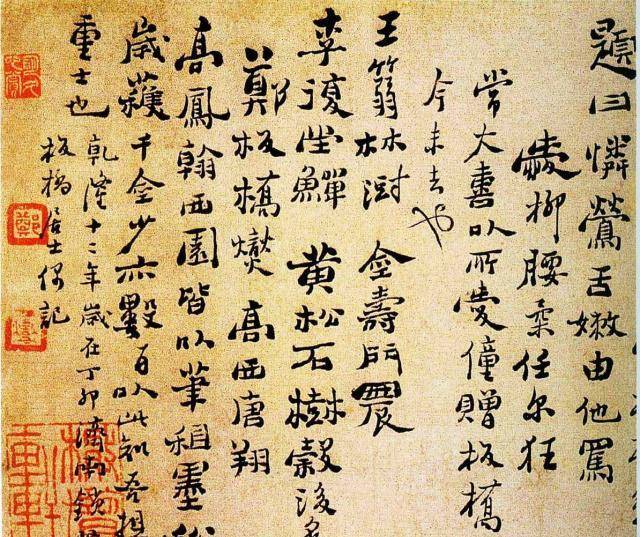 題曰憐鶯舌嫩由他罵
愛柳腰柔任尔狂
常大喜以所愛僮贈板橋
今未去也
王篛林澍金壽門農
李復堂鱓黃松石樹穀後名
鄭板橋燮高西唐翔
高鳳翰西園皆以筆租墨稅
歲獲千金少亦數百以此知吾
重士也
乾隆十二年歲在丁卯濟南鎖
板橋居士偶記
鄭
燮